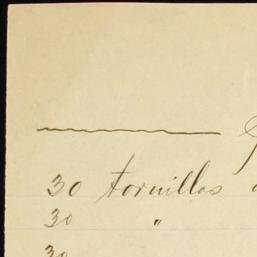 30 tornillos
30 "
30